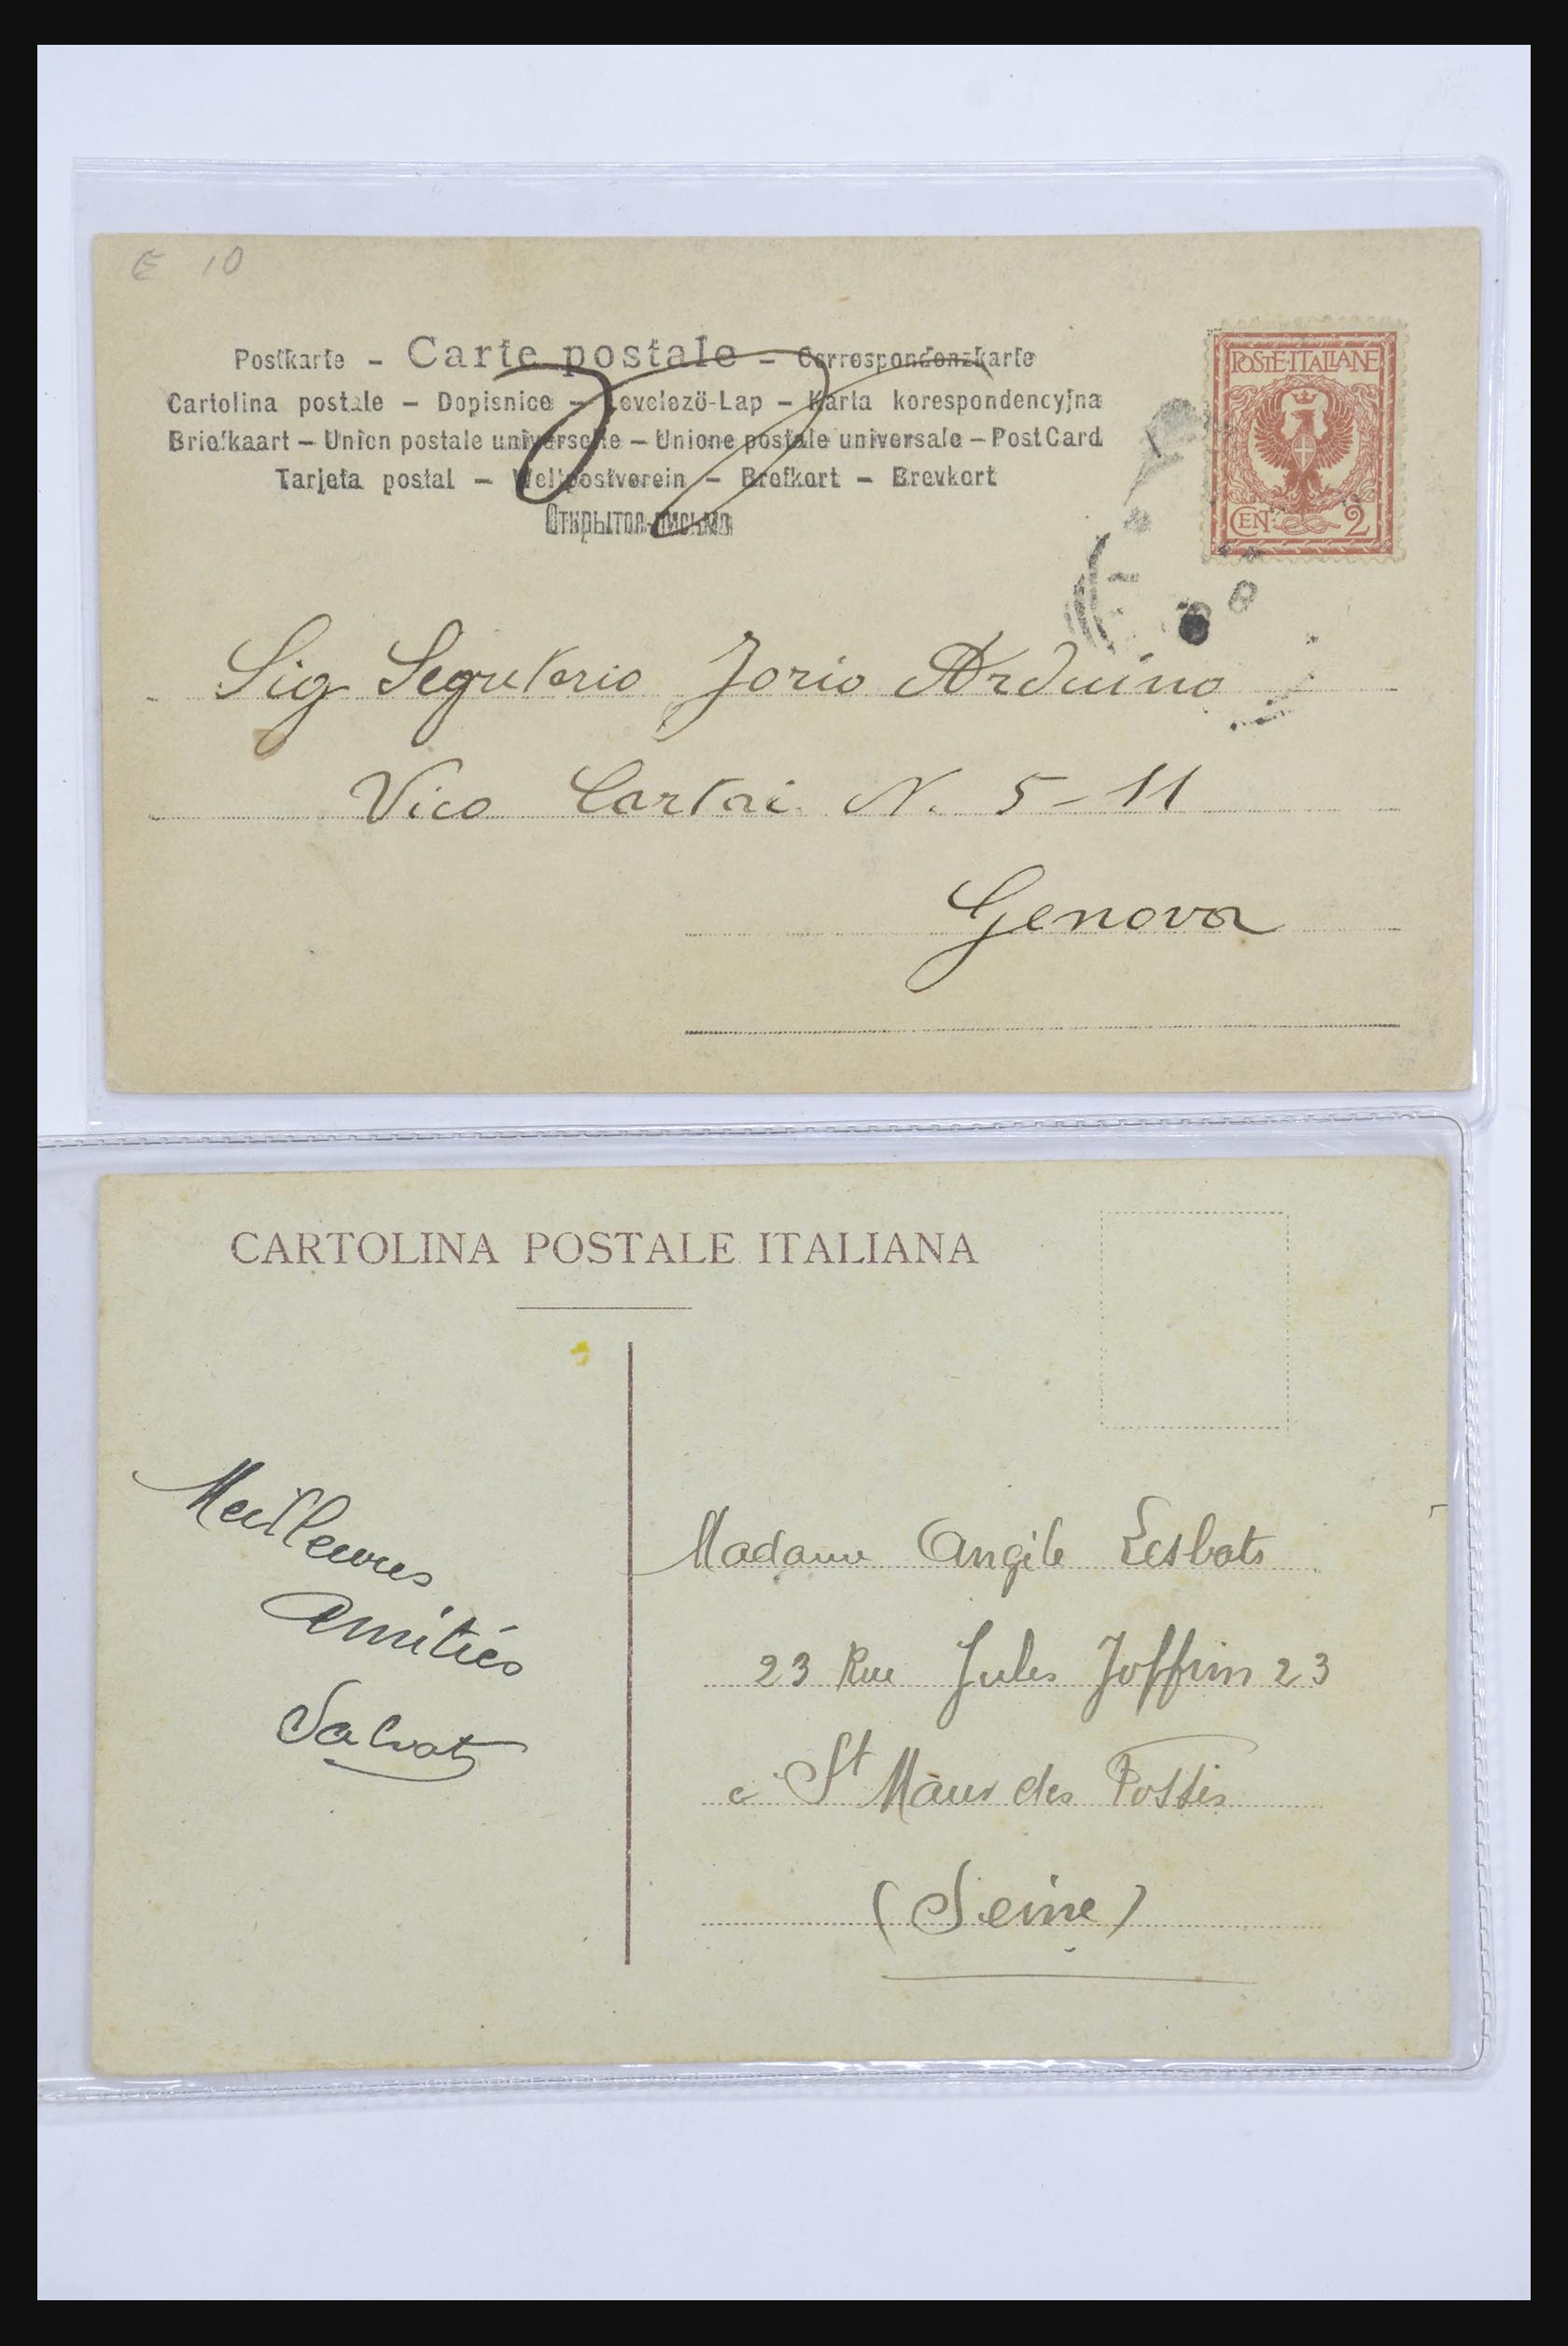 E 10
Postkarte - Carte postale - Correspondenzkarte
Cartolina postale - Dopisnice - Levelezö-Lap - Karta korespondencyjna
Briefkaart - Union postale universelle - Unione postale universale - Post Card
Tarjeta postal - Weltpostverein - Brefkort - Brevkort
Открытое письмо
POSTE·ITALIANE
CEN. 2
Sig Segretario Jorio Arduino
Vico Cartai N. 5-11
Genova
CARTOLINA POSTALE ITALIANA
Meilleures
amitiés
Salvat
Madame Angèle Lesbats
23 Rue Jules Joffrin 23
à St Maur des Fossés
(Seine)